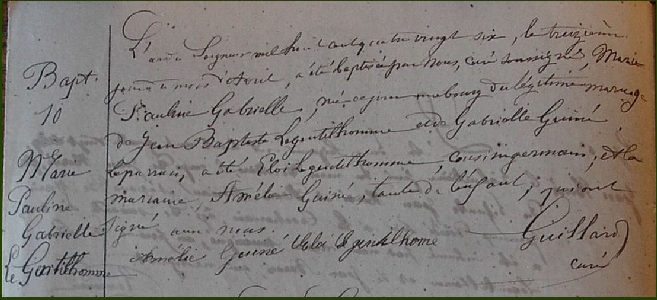 Bapt.
10
Marie
Pauline
Gabrielle
Le Gentilhomme
L'an du Seigneur mil huit cent quatre vingt six, le treizième
jour du mois d'Avril, a été baptisée par nous, curé soussigné, Marie
Pauline Gabrielle, née ce jour au bourg du légitime mariage
de Jean Baptiste Legentilhomme et de Gabrielle Guiné
le parrain, a été Eloi Legentilhomme, cousin germain, et la
marraine, Amélie Guiné, tante de l'enfant, qui ont
signé avec nous.
Amélie Guiné Eloi Legentilhome Guillard
curé